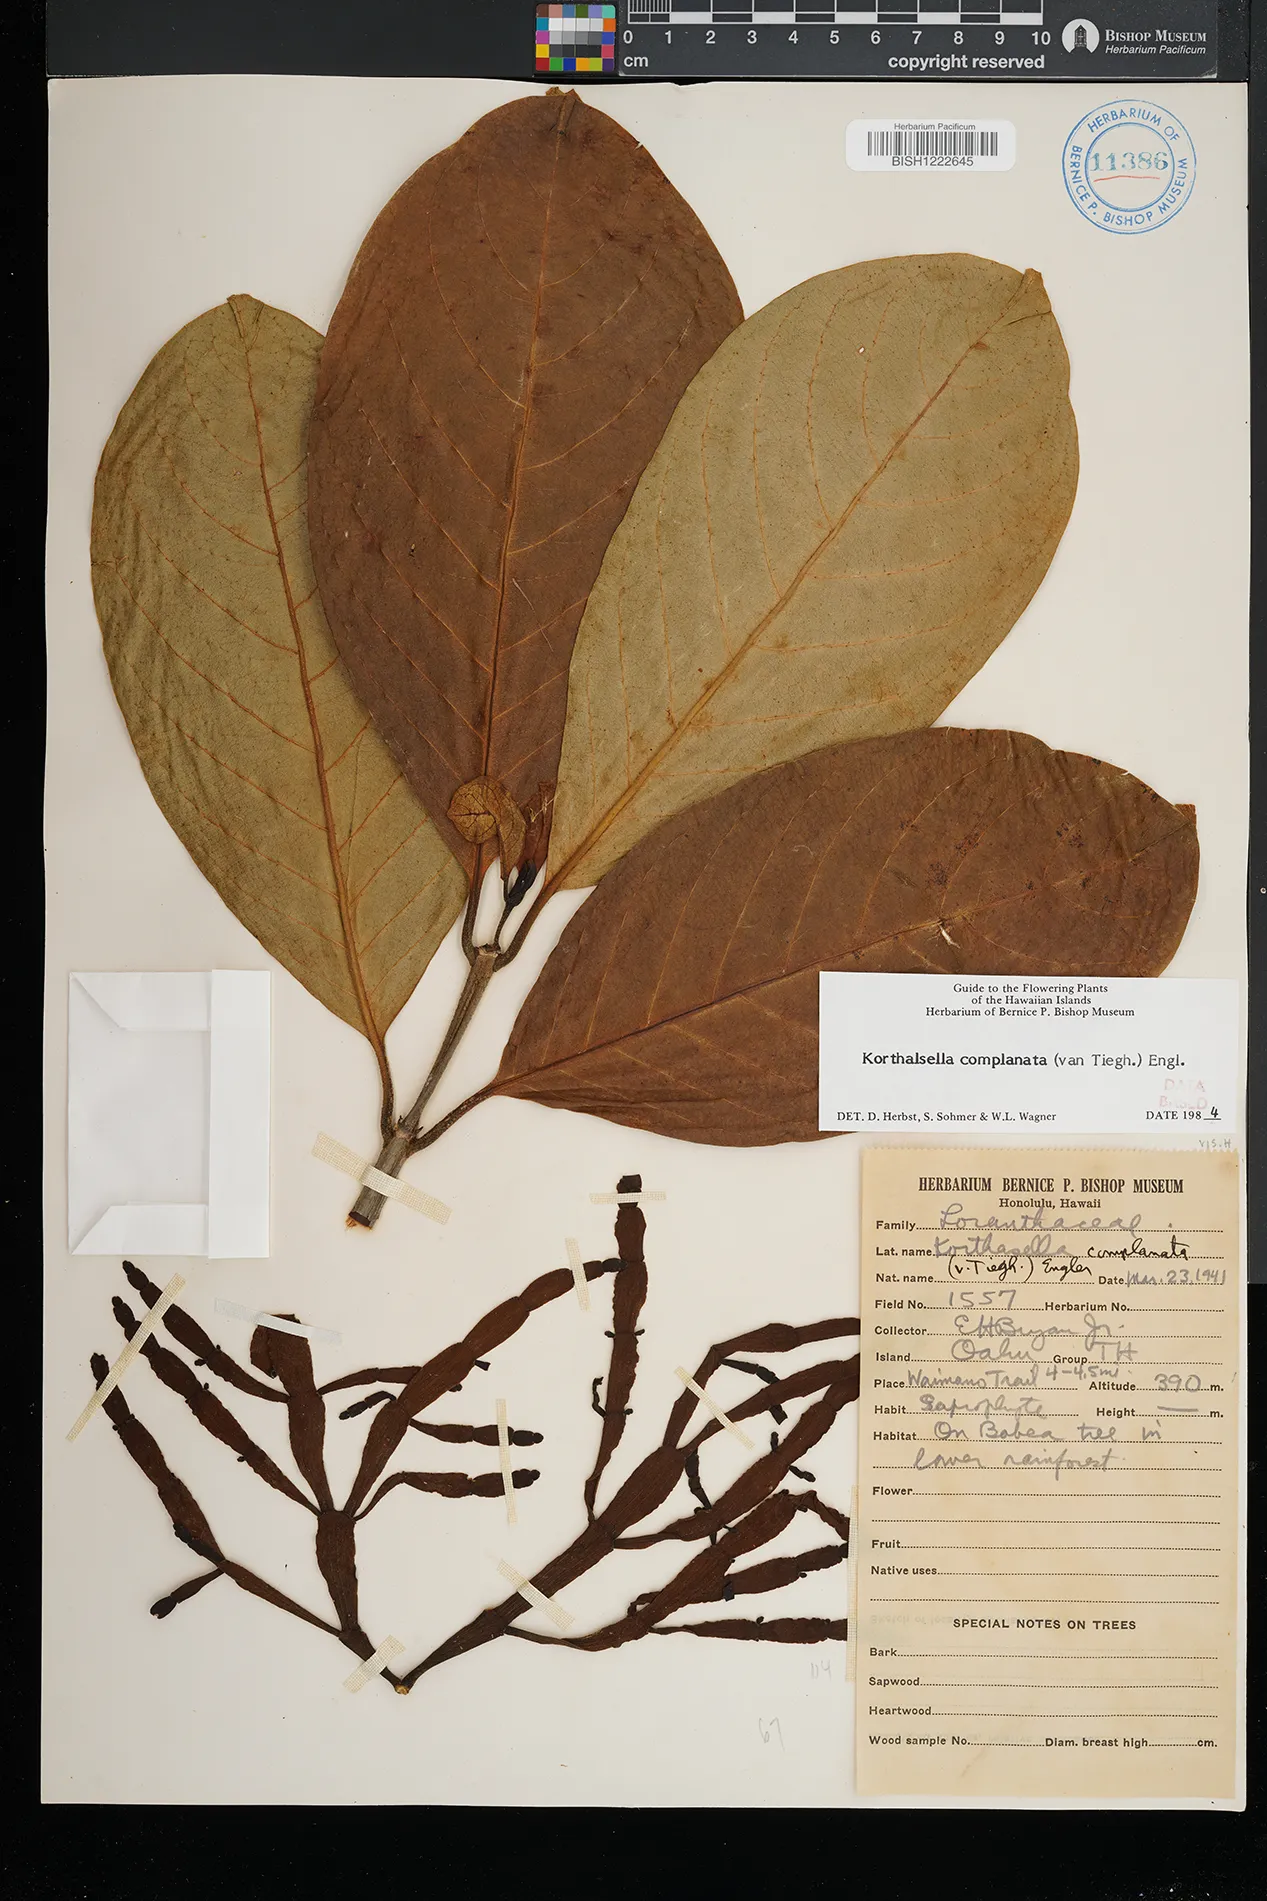 0 1 2 3 4 5 6 7 8 9 10
cm
copyright reserved
BISHOP MUSEUM
Herbarium Pacificum
Herbarium Pacificum
BISH1222645
HERBARIUM OF
11386
BERNICE P. BISHOP MUSEUM
Guide to the Flowering Plants
of the Hawaiian Islands
Herbarium of Bernice P. Bishop Museum
Korthalsella complanata (van Tiegh.) Engl.
DATA
DET. D. Herbst, S. Sohmer & W.L. Wagner DATE 1984
HERBARIUM BERNICE P. BISHOP MUSEUM
Honolulu, Hawaii
Family Loranthaceae
Lat. name Korthasella complanata
(v. Tiegh.) Engler
Nat. name Date Mar. 23, 1941
Field No. 1557 Herbarium No.
Collector EHBryan Jr.
Island Oahu Group TH
Place Waimano Trail 4-4.5 mi. Altitude 390 m.
Habit Saprophyte Height — m.
Habitat On Bobea tree in
lower rainforest
Flower
Fruit
Native uses
SPECIAL NOTES ON TREES
Bark
Sapwood
Heartwood
Wood sample No. Diam. breast high cm.
67